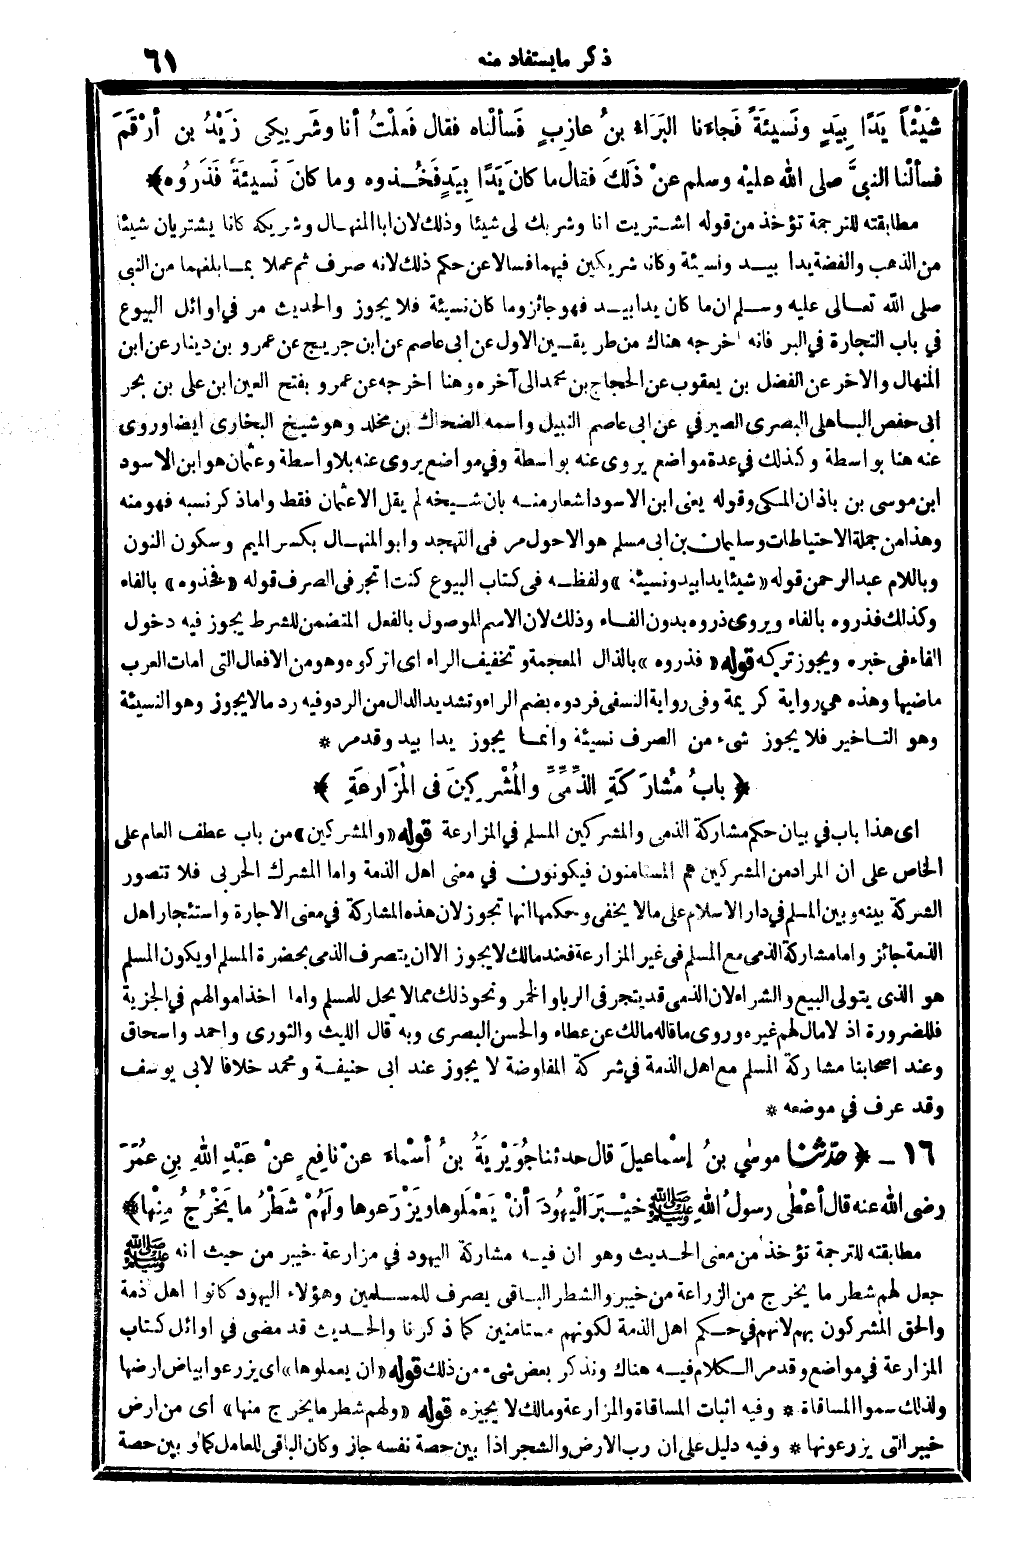 ذكر مايستفاد منه ٦١
شَيْئاً يَدًا بِيَدٍ ونَسِيئَةً فَجاءَنا البَرَاءُ بنُ عازِبٍ فَسألْناه فقال فَعلْتُ أنا وشَرِيكِى زَيْدُ بن أرْقَمَ
فسألْنا النبيَّ صلى الله عليْه وسلم عنْ ذٰلكَ فقال ما كانَ يَدًا بِيَدٍ فَخُـذوه وما كانَ نَسِيئَةً فَذَرُوه﴾
مطابقته للترجمة تؤخذ من قوله اشـتريت انا وشريك لى شيئا وذلك لان ابا المنهـال وشريكه كانا يشتريان شيئا
من الذهب والفضة يدا بيـد ونسيئة وكانا شريكين فيهما فسالا عن حكم ذلك لانه صرف ثم عملا بمـا بلغهما من النبي
صلى الله تعـالى عليه وسـلم ان ما كان يدا بيـد فهو جائز وما كان نسيئة فلا يجوز والحديث مر في اوائل البيوع
في باب التجارة في البر فانه اخرجه هناك من طريقـين الاول عن ابى عاصم عن ابن جريج عن عمرو بن دينار عن ابن
المنهال والاخر عن الفضل بن يعقوب عن الحجاج بن محمد الى آخره وهنا اخرجه عن عمرو بفتح العين ابن على بن بحر
ابى حفص البـاهلى البصرى الصيرفي عن ابى عاصم النبيل واسمه الضحاك بن مخلد وهو شيخ البخارى ايضا وروى
عنه هنا بواسطة وكذلك في عدة مواضع يروى عنه بواسطة وفي مواضع يروى عنه بلا واسطة وعثمان هو ابن الاسود
ابن موسى بن باذان المكى وقوله يعنى ابن الاسود اشعار منـه بان شـيخه لم يقل الاعثمان فقط واما ذكر نسبه فهو منه
وهذا من جملة الاحتياطات وسليمان بن ابى مسلم هو الاحول مر فى التهجد وابو المنهـال بكسر الميم وسكون النون
وباللام عبد الرحمن قوله «شيئا يدا بيد ونسيئة» ولفظـه فى كتاب البيوع كنت اتجر فى الصرف قوله «فخذوه» بالفاء
وكذلك فذروه بالفاء ويروى ذروه بدون الفـاء وذلك لان الاسم الموصول بالفعل المتضمن للشرط يجوز فيه دخول
الفاء فى خبره ويجوز تركه قوله «فذروه» بالذال المعجمة وتخفيف الراء اى اتركوه وهو من الافعال التى امات العرب
ماضيها وهذه هي رواية كريمة وفى رواية النسفى فردوه بضم الراء وتشديد الدال من الرد وفيه رد مالايجوز وهو النسيئة
وهو التـاخير فلا يجوز شىء من الصرف نسيئة وانمـا يجوز يدا بيد وقد مر *
﴿ بابُ مُشارَكَةِ الذِّمِّىِّ والمُشْرِكِينَ فى المُزَارعَةِ ﴾
اى هذا باب في بيان حكم مشاركة الذمى والمشركين المسلم في المزارعة قوله «والمشركين» من باب عطف العام على
الخاص على ان المراد من المشركين هم المستامنون فيكونون في معنى اهل الذمة واما المشرك الحربى فلا تتصور
الشركة بينه وبين المسلم في دار الاسلام على مالا يخفى وحكمها انها تجوز لان هذه المشاركة في معنى الاجارة واستئجار اهل
الذمة جائز واما مشاركة الذمى مع المسلم فى غير المزارعة فعند مالك لا يجوز الا ان يتصرف الذمى بحضرة المسلم او يكون المسلم
هو الذى يتولى البيع والشراء لان الذمى قد يتجر فى الربا والخمر ونحو ذلك مما لا يحل للمسلم واما اخذ اموالهم في الجزية
فللضرورة اذ لا مال لهم غيره وروى ما قاله مالك عن عطاء والحسن البصرى وبه قال الليث والثورى واحمد واسحاق
وعند اصحابنا مشاركة المسلم مع اهل الذمة في شركة المفاوضة لا يجوز عند ابى حنيفـة ومحمد خلافا لابى يوسف
وقد عرف في موضعه *
١٦ ـ ﴿ حدّثنا موسٰي بنُ إسْماعيلَ قال حدثنا جُوَيْرِيَةُ بنُ أسْماءَ عنْ نافِعٍ عنْ عَبْدِ اللهِ بنِ عُمَرَ
رضى الله عنه قال أعْطٰى رسولُ اللهِ ﷺ خَيْـبَرَ الْيهُودَ أنْ يَعْمَلوها ويَزْرَعوها ولَهُمْ شَطْرُ ما يَخْرُجُ مِنْها﴾
مطابقته للترجمة تؤخذ من معنى الحـديث وهو ان فيـه مشاركة اليهود في مزارعة خيبر من حيث انه ﷺ
جعل لهم شطر ما يخرج من الزراعة من خيبر والشطر البـاقى يصرف للمسـلمين وهؤلاء اليهود كانوا اهل ذمة
والحق المشركون بهم لانهم في حـكم اهل الذمة لكونهم مستامنين كما ذكرنا والحديث قد مضى في اوائل كتاب
المزارعة في مواضع وقد مر الـكلام فيـه هناك ونذكر بعض شىء من ذلك قوله «ان يعملوها» اى يزرعوا بياض ارضها
ولذلك سموا المساقاة * وفيه اثبات المساقاة والمزارعة ومالك لا يجيزه قوله «ولهم شطر ما يخرج منها» اى من ارض
خيبر التى يزرعونها * وفيه دليل على ان رب الارض والشجر اذا بين حصة نفسه جاز وكان الباقى للعامل كما لو بين حصة